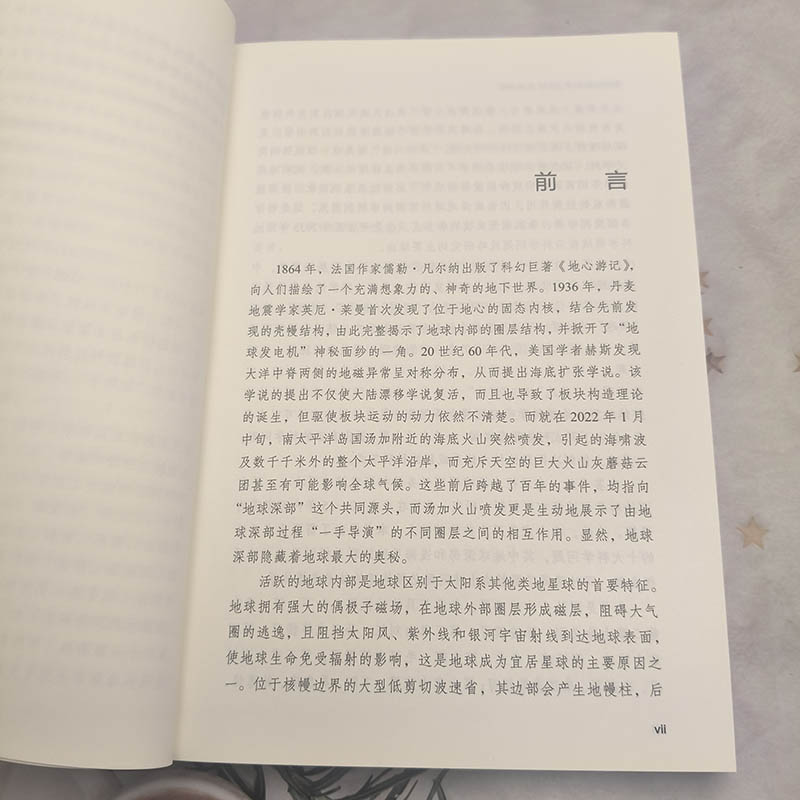 前 言
1864 年，法国作家儒勒·凡尔纳出版了科幻巨著《地心游记》，
向人们描绘了一个充满想象力的、神奇的地下世界。1936 年，丹麦
地震学家英厄·莱曼首次发现了位于地心的固态内核，结合先前发
现的壳幔结构，由此完整揭示了地球内部的圈层结构，并掀开了“地
球发电机”神秘面纱的一角。20 世纪 60 年代，美国学者赫斯发现
大洋中脊两侧的地磁异常呈对称分布，从而提出海底扩张学说。该
学说的提出不仅使大陆漂移学说复活，而且也导致了板块构造理论
的诞生，但驱使板块运动的动力依然不清楚。而就在 2022 年 1 月
中旬，南太平洋岛国汤加附近的海底火山突然喷发，引起的海啸波
及数千千米外的整个太平洋沿岸，而充斥天空的巨大火山灰蘑菇云
团甚至有可能影响全球气候。这些前后跨越了百年的事件，均指向
“地球深部”这个共同源头，而汤加火山喷发更是生动地展示了由地
球深部过程“一手导演”的不同圈层之间的相互作用。显然，地球
深部隐藏着地球最大的奥秘。
活跃的地球内部是地球区别于太阳系其他类地星球的首要特征。
地球拥有强大的偶极子磁场，在地球外部圈层形成磁层，阻碍大气
圈的逃逸，且阻挡太阳风、紫外线和银河宇宙射线到达地球表面，
使地球生命免受辐射的影响，这是地球成为宜居星球的主要原因之
一。位于核幔边界的大型低剪切波速省，其边部会产生地幔柱，后
vii